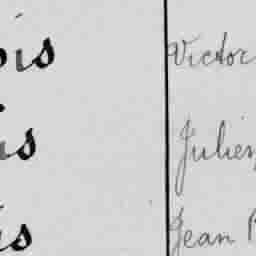 ois Victor
is Julien
is Jean